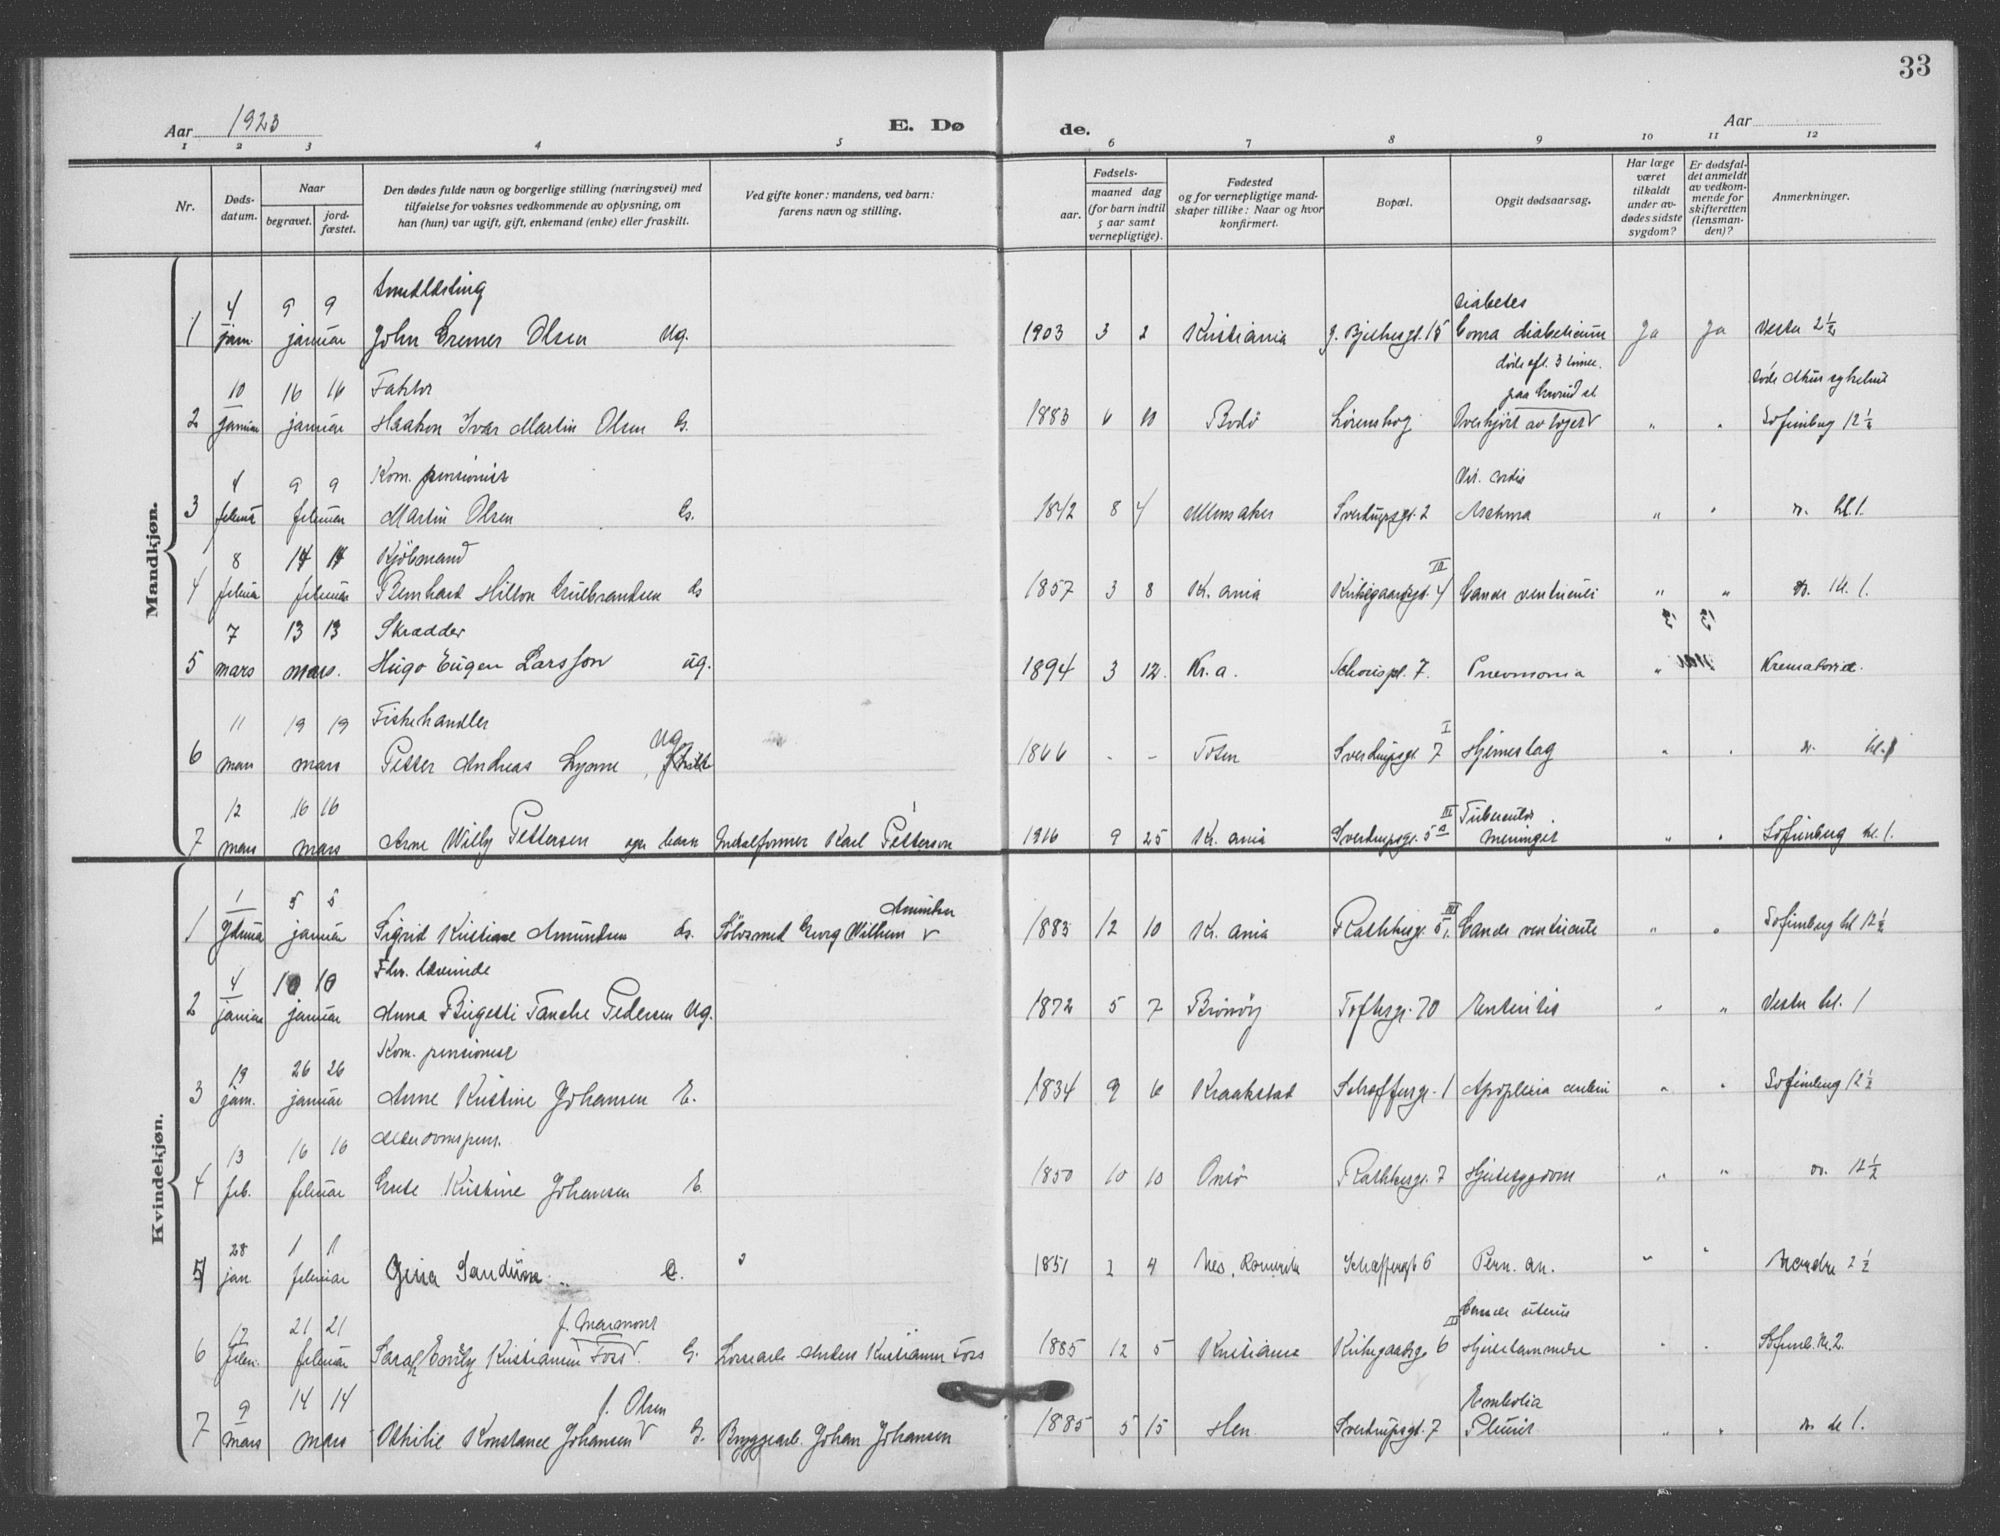 33
Aar 1923
E. Døde.
Aar
1 2 3 4 5 6 7 8 9 10 11 12
Nr.
Døds-datum.
Naar
begravet.
jord-fæstet.
Den dødes fulde navn og borgerlige stilling (næringsvei) med
tilføielse for voksnes vedkommende av oplysning, om
han (hun) var ugift, gift, enkemand (enke) eller fraskilt.
Ved gifte koner: mandens, ved barn:
farens navn og stilling.
Fødsels-
aar.
maaned dag
(for barn indtil
5 aar samt
vernepligtige).
Fødested
og for vernepligtige mand-
skaper tillike: Naar og hvor
konfirmert.
Bopæl.
Opgit dødsaarsag.
Har læge
været
tilkaldt
under av-
dødes sidste
sygdom?
Er dødsfal-
det anmeldt
av vedkom-
mende for
skifteretten
(lensman-
den)?
Anmerkninger.
Mandkjøn.
4 9 9 Diabetes
1 jan. januar John Cremer Olsen Ug. 1903 3 2 Kristiania 15 Coma diabeticum Ja Ja Vestre 2½
døde eft. 3 timer
10 16 16 Faktor
2 januar januar Haakon Ivar Martin Olsen G. 1883 6 10 Bodö Lørenskog Overkjört av toget " " Sofienberg 12½
4 9 9 Kom. pensionist Vit. cordis
3 februar februar Martin Olsen G. 1842 8 4 Ullensaker Sverdrupsgt. 2 Asthma " " do. kl. 1.
8 14 14 Kjöbmand III
4 februar februar Bernhard Hilton Gulbrandsen G 1857 3 8 Kr. ania Kirkegaardsgt. 4 Cancer ventriculi " " do. kl. 1.
7 13 13 Skrædder
5 mars mars. Hugo Eugen Larsson ug. 1894 3 12. Kr. a. Schouspl. 7. Pnevmonia " Krematoriet.
11 19 19 Fiskehandler Ug. I
6 mars mars Petter Andreas Lynne, 1866 - - Toten Sverdrupsgt. 7 Hjerneslag " " do. kl. 1
12 16 16 III Tuberculös
7 mars mars Arne Willy Pettersen barn Karl Pettersen 1916 9 25 Kr. ania Sverdrupsgt. 5 a meningit " " Sofienberg kl. 1.
Kvindekjøn.
1 5 5 Amundsen III
1 januar januar Sigrid Kristiane Amundsen G. Sölvsmed Georg Wilhelm 1883 12 10 Kr. ania Rathkesgt. 5, Cancer ventriculi " " Sofienberg kl 12½
4 10 10 Fhv. lærerinde
2 januar januar Anna Birgette Tanche Pedersen Ug. 1872 5 7 Brönöy Toftesgt. 70 Enteritis " " Vestre kl. 1
19 26 26 Kom. pensionist
3 jan. januar Anne Kristine Johansen E. 1834 9 6 Kraakstad Schaffersgt. 1 Apoplexia cerebri " " Sofienberg 12½
13 16 16 Alderdomspens.
4 feb. februar Grete Kristine Johansen E. 1850 10 10 Onsö Rathkesgt. 7 Hjertesygdom " " do. 12½
28 1 1
5 jan. februar Gina Sandum E. 1851 2 4 Nes, Romerike Schaffersgt 6 Pern. an. " " Nordre 2½
17 21 21 f. Marmont Cancer uterus
6 februar Sarah Emily Kristiansen Foss G. Anders Kristiansen Foss 1885 12 5 Kristiania Kirkegaardsgt. 6 Hjertelammelse " " Sofienb. kl. 2.
9 14 14 f. Olsen Embolia
7 mars mars Othilie Konstance Johansen G. Bryggearb. Johan Johansen 1885 5 15 Hen Sverdrupsgt. 7 Pleurit " " do kl 1.